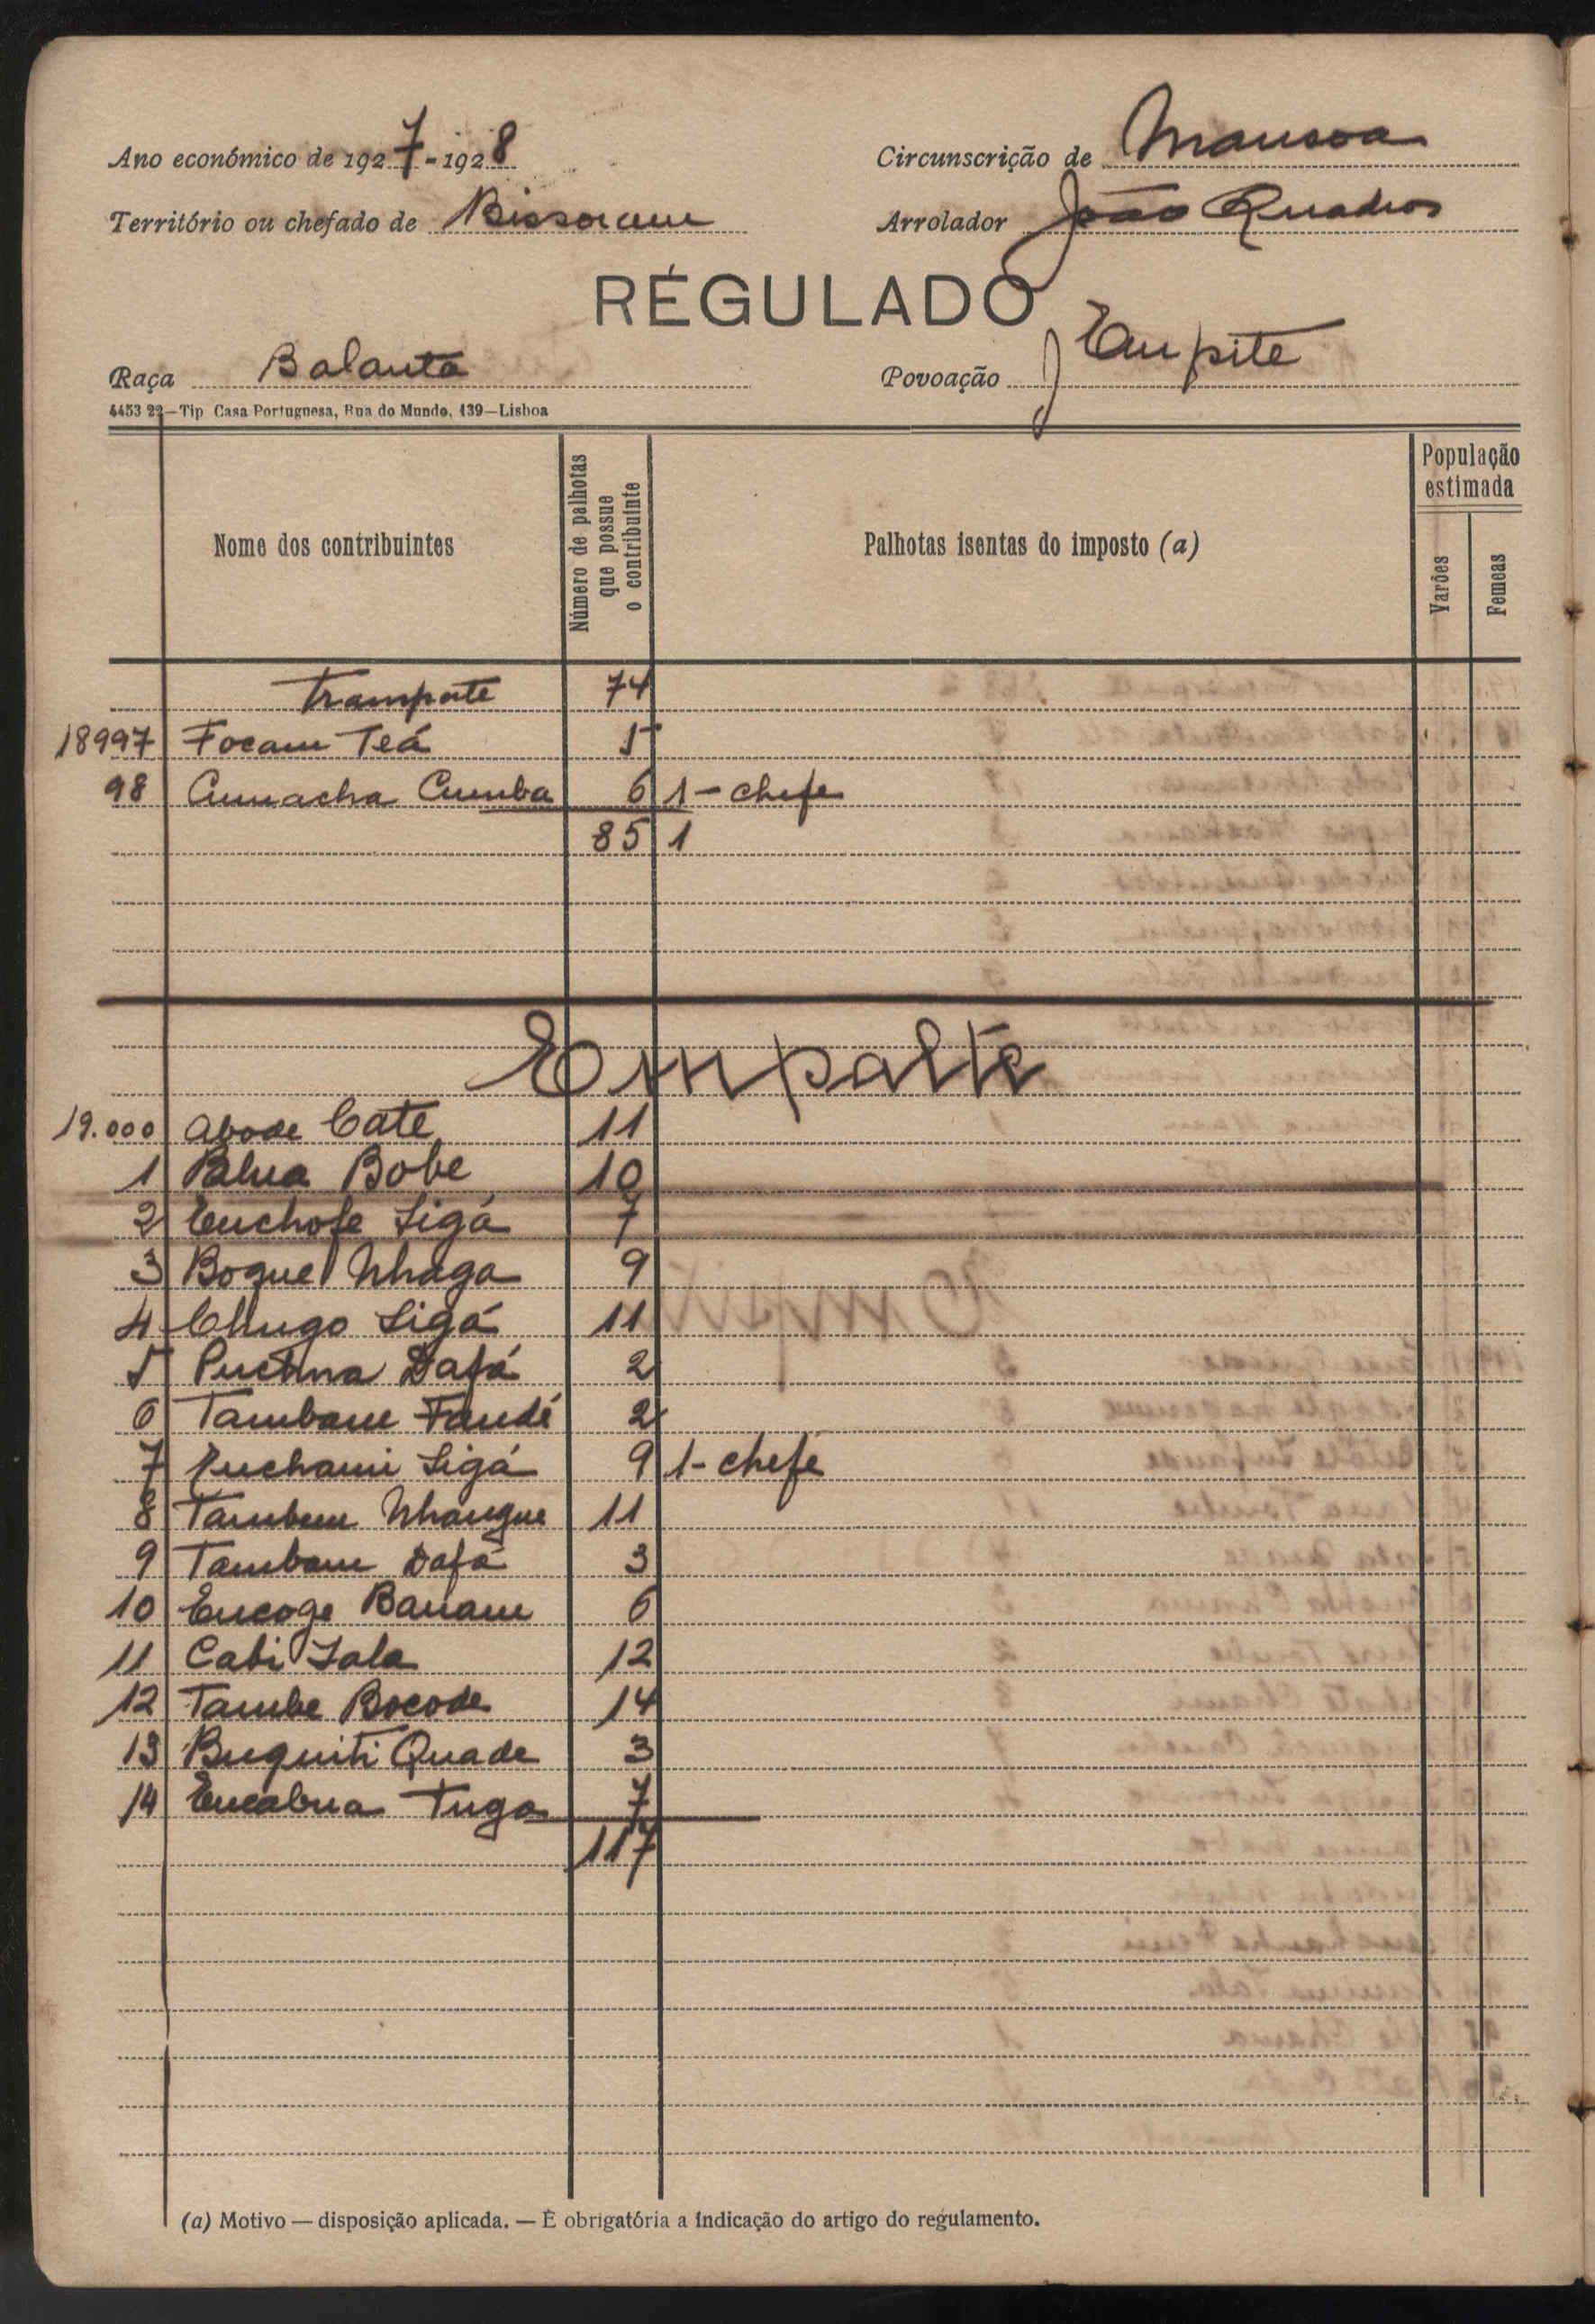 Ano económico de 1927-1928
Circunscrição de Mansoa
Território ou chefado de Bissoram
Arrolador João Quadros
RÉGULADO
Raça Balanta
Povoação Empite
4453 22—Tip Casa Portuguesa, Rua do Mundo, 139—Lisboa
Nome dos contribuintes
Número de palhotas que possue o contribuinte
Palhotas isentas do imposto (a)
População estimada
Varões
Femeas
Transporte 74
18997 Focam Teá 5
98 Cumba 6 1-chefe
85 1
Empalte
19.000 Abode Cate 11
1 Bobe 10
2 Enchofe Sigá 7
3 Boque Nhaga 9
4 Chugo Sigá 11
5 Dafá 2
6 Tambam Fandé 2
7 Sigá 9 1-chefe
8 Tambem Nhangue 11
9 Tambam Dafá 3
10 Encoge Banam 6
11 Cabi Iala 12
12 Tambe Bocode 14
13 Buquiti Quade 3
14 Encabua Tuga 7
117
(a) Motivo — disposição aplicada. — É obrigatória a indicação do artigo do regulamento.